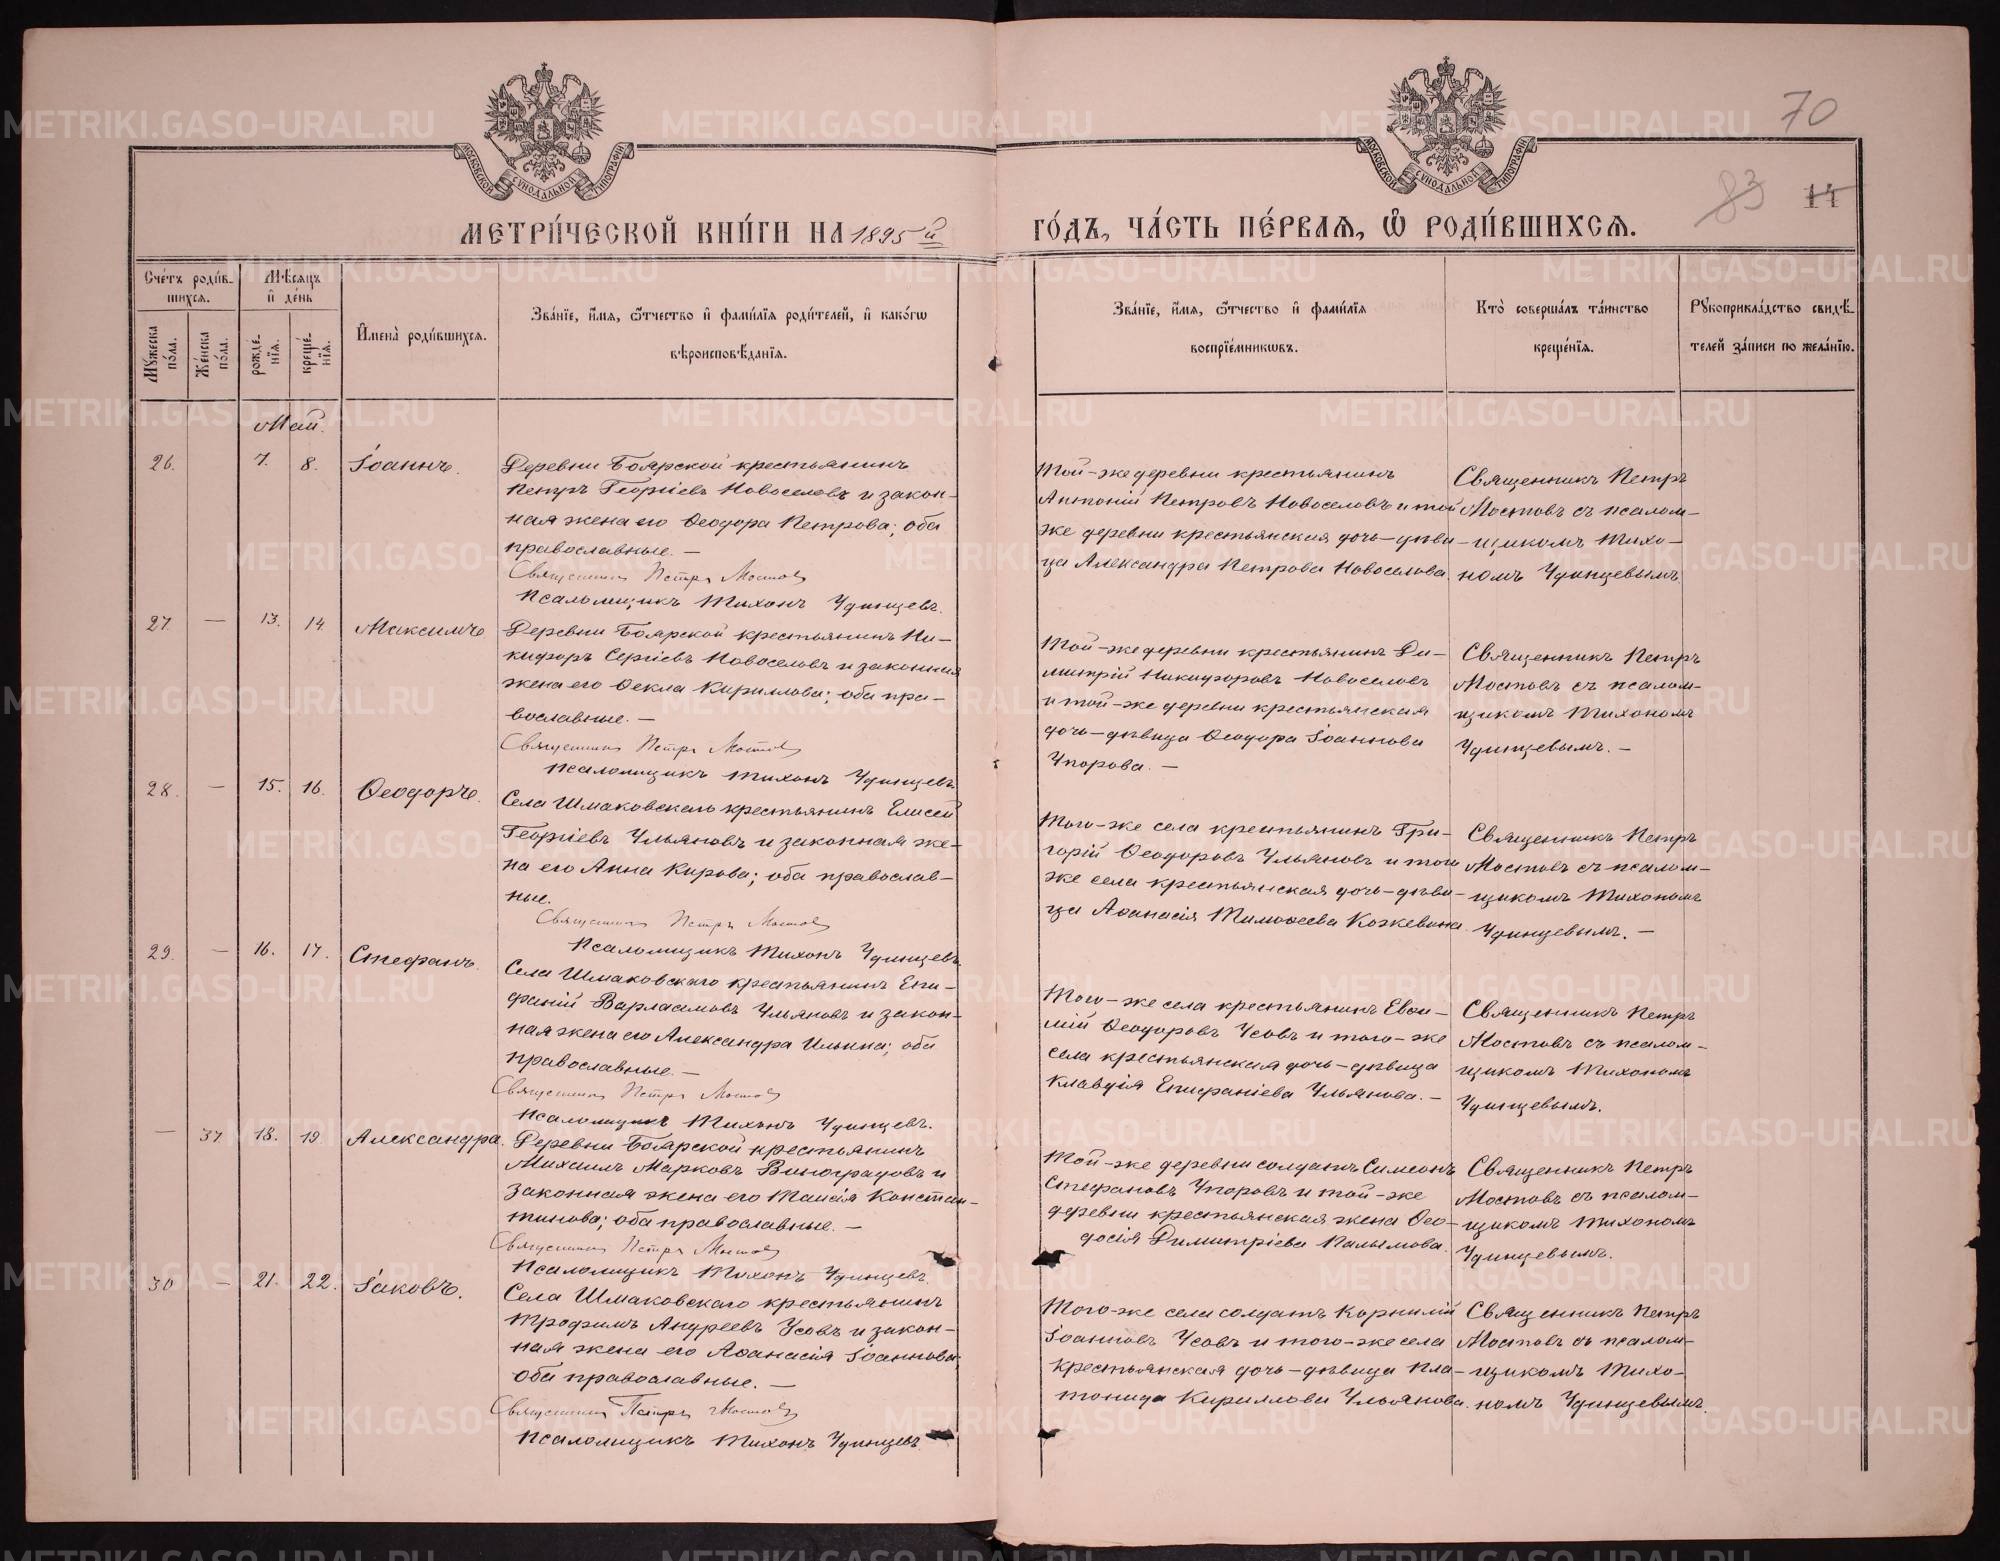 70
83 14
МОСКОВСКОЙ СУНОДАЛЬНОЙ ТИПОГРАФІИ
МОСКОВСКОЙ СУНОДАЛЬНОЙ ТИПОГРАФІИ
МЕТРИ́ЧЕСКОЙ КНИ́ГИ НА 1895й
ГО́ДЪ, ЧА́СТЬ ПЕ́РВАЯ, Ѽ РОДИ́ВШИХСЯ.
Сче́тъ роди́в-
шихся.
Мѣсяцъ
и҆ де́нь
Мꙋ́жеска по́ла.
Же́нска по́ла.
рожде-
нїя.
креще-
нїя.
И҆мена̀ роди́вшихся.
Зва́нїе, и҆́мя, ѻ҆́тчество и҆ фами́лїя роди́телей, и҆ како́гѡ
вѣроисповѣ́данїя.
Зва́нїе, и҆́мя, ѻ҆́тчество и҆ фами́лїя
воспрїе́мникѡвъ.
Кто̀ соверша́лъ та́инство
креще́нїя.
Рꙋкоприкла́дство свидѣ́-
телей за́писи по жела́нїю.
Май.
26. 7. 8. Іоаннъ.
Деревни Боярской крестьянинъ
Петръ Георгіевъ Новоселовъ и закон-
ная жена его Ѳеодора Петрова; оба
православные. —
Священникъ Петръ Мостовъ
Псаломщикъ Тихонъ Удинцевъ.
Той-же деревни крестьянинъ
Антоній Петровъ Новоселовъ и той
же деревни крестьянская дочь-дѣви-
ца Александра Петрова Новоселова.
Священникъ Петръ
Мостовъ съ псалом-
щикомъ Тихо-
номъ Удинцевымъ.
27. — 13. 14. Максимъ
Деревни Боярской крестьянинъ Ни-
кифоръ Сергіевъ Новоселовъ и законная
жена его Ѳекла Кириллова; оба пра-
вославные. —
Священникъ Петръ Мостовъ
Псаломщикъ Тихонъ Удинцевъ.
Той-же деревни крестьянинъ Ди-
митрій Никифоровъ Новоселовъ
и той-же деревни крестьянская
дочь-дѣвица Ѳеодора Іоаннова
Упорова. —
Священникъ Петръ
Мостовъ съ псалом-
щикомъ Тихономъ
Удинцевымъ. —
28. — 15. 16. Ѳеодоръ.
Села Шмаковскаго крестьянинъ Елисей
Георгіевъ Ульяновъ и законная же-
на его Анна Кирова; оба православ-
ные.
Священникъ Петръ Мостовъ
Псаломщикъ Тихонъ Удинцевъ.
Того-же села крестьянинъ Гри-
горій Ѳеодоровъ Ульяновъ и того
же села крестьянская дочь-дѣви-
ца Аѳанасія Тимоѳеева Кожевина.
Священникъ Петръ
Мостовъ съ псалом-
щикомъ Тихономъ
Удинцевымъ. —
29. — 16. 17. Стефанъ.
Села Шмаковскаго крестьянинъ Епи-
фаній Варлаамовъ Ульяновъ и закон-
ная жена его Александра Ильина; оба
православные. —
Священникъ Петръ Мостовъ
Псаломщикъ Тихонъ Удинцевъ.
Того-же села крестьянинъ Евѳи-
мій Ѳеодоровъ Усовъ и того-же
села крестьянская дочь-дѣвица
Клавдія Епифаніева Ульянова. —
Священникъ Петръ
Мостовъ съ псалом-
щикомъ Тихономъ
Удинцевымъ.
— 37. 18. 19. Александра.
Деревни Боярской крестьянинъ
Михаилъ Марковъ Виноградовъ и
законная жена его Таисія Констан-
тинова; оба православные. —
Священникъ Петръ Мостовъ
Псаломщикъ Тихонъ Удинцевъ.
Той-же деревни солдатъ Симеонъ
Стефановъ Упоровъ и той-же
деревни крестьянская жена Ѳео-
досія Димитріева Палымова.
Священникъ Петръ
Мостовъ съ псалом-
щикомъ Тихономъ
Удинцевымъ.
30 — 21. 22. Іаковъ.
Села Шмаковскаго крестьянинъ
Трофимъ Андреевъ Усовъ и закон-
ная жена его Аѳанасія Іоаннова;
оба православные. —
Священникъ Петръ Мостовъ
Псаломщикъ Тихонъ Удинцевъ
Того-же села солдатъ Корнилій
Іоанновъ Усовъ и того-же села
крестьянская дочь-дѣвица Пла-
тонида Кириллова Ульянова.
Священникъ Петръ
Мостовъ съ псалом-
щикомъ Тихо-
номъ Удинцевымъ.
METRIKI.GASO-URAL.RU